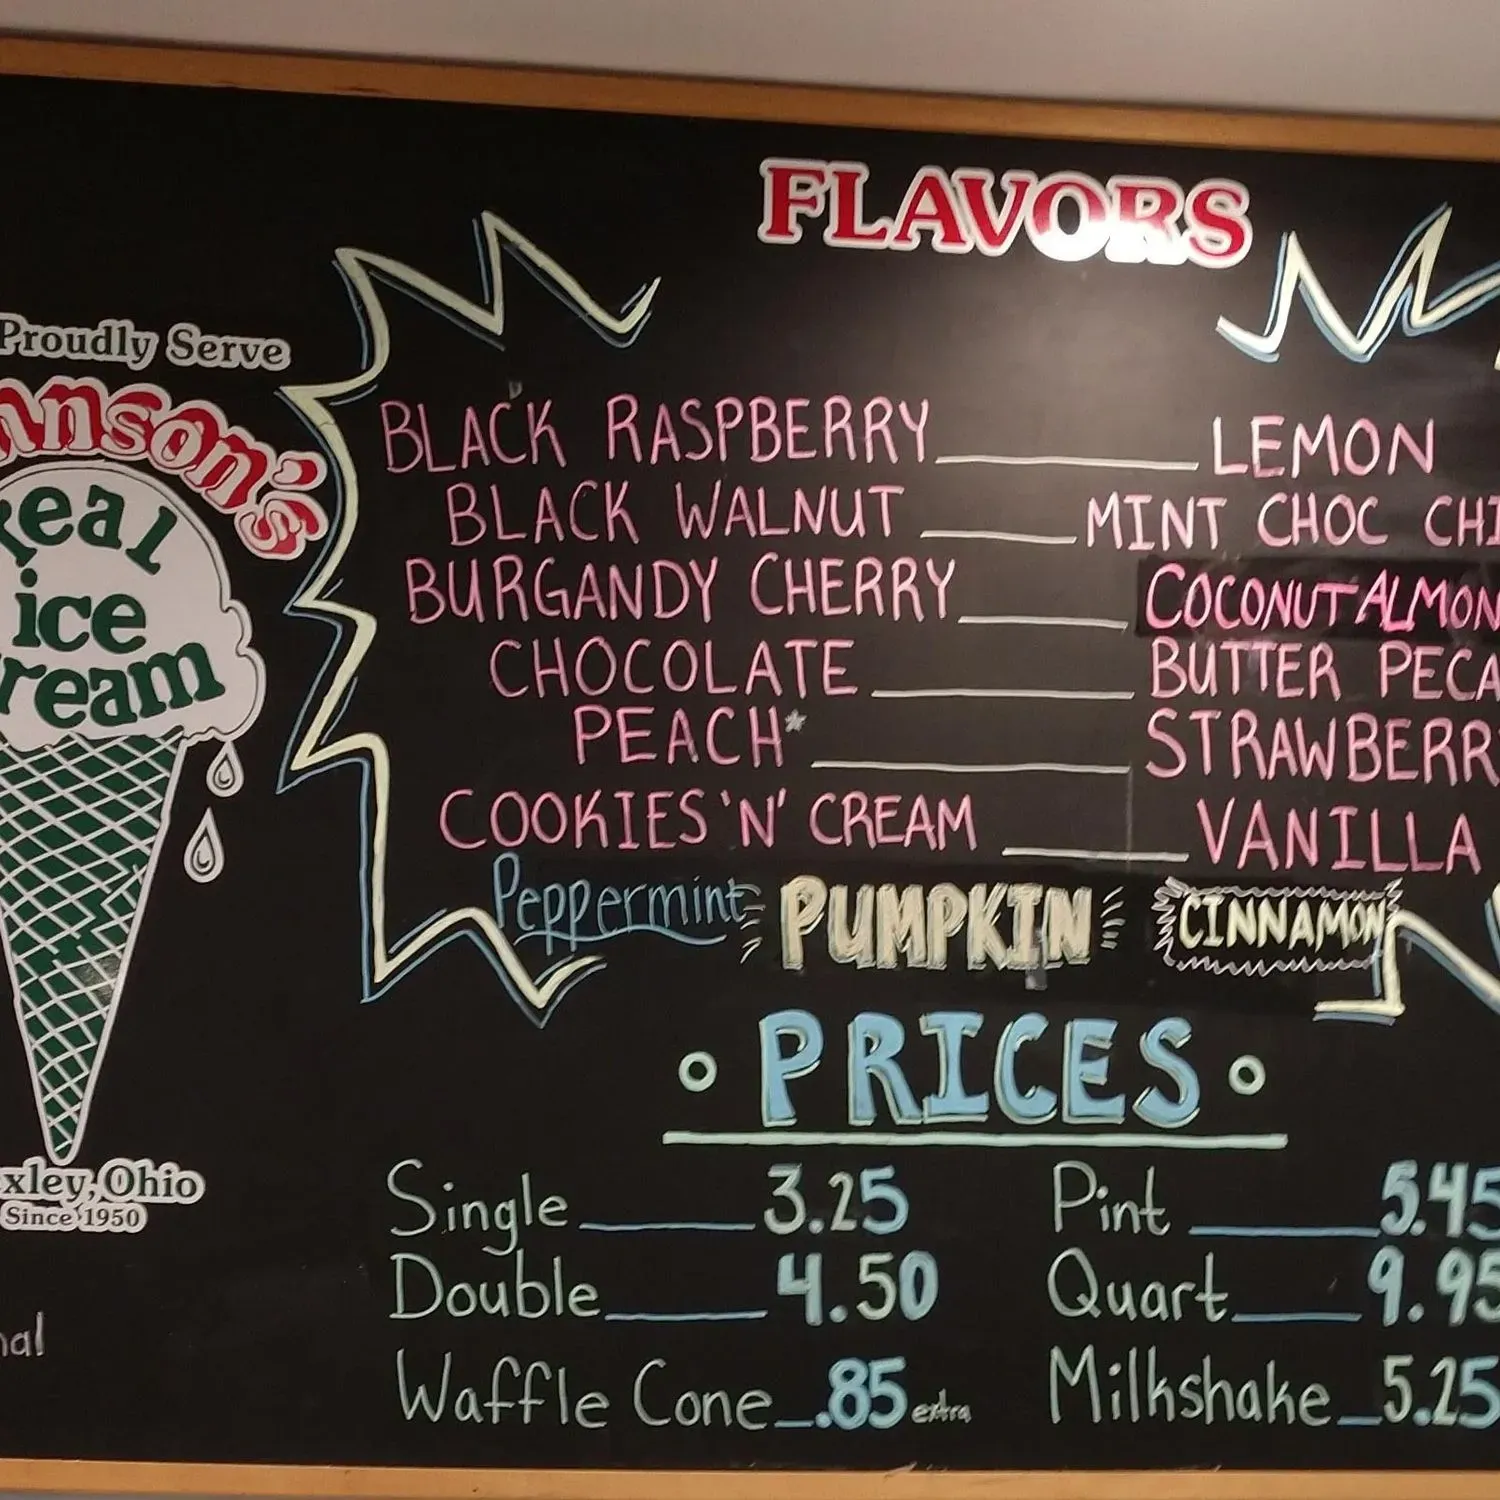 FLAVORS
Proudly Serve
nson's
Real
ice
ream
xley, Ohio
Since 1950
nal
BLACK RASPBERRY LEMON
BLACK WALNUT MINT CHOC CHI
BURGANDY CHERRY COCONUT ALMON
CHOCOLATE BUTTER PECA
PEACH* STRAWBERRY
COOKIES 'N' CREAM VANILLA
Peppermint PUMPKIN CINNAMON
PRICES
Single 3.25 Pint 5.45
Double 4.50 Quart 9.95
Waffle Cone .85 extra Milkshake 5.25